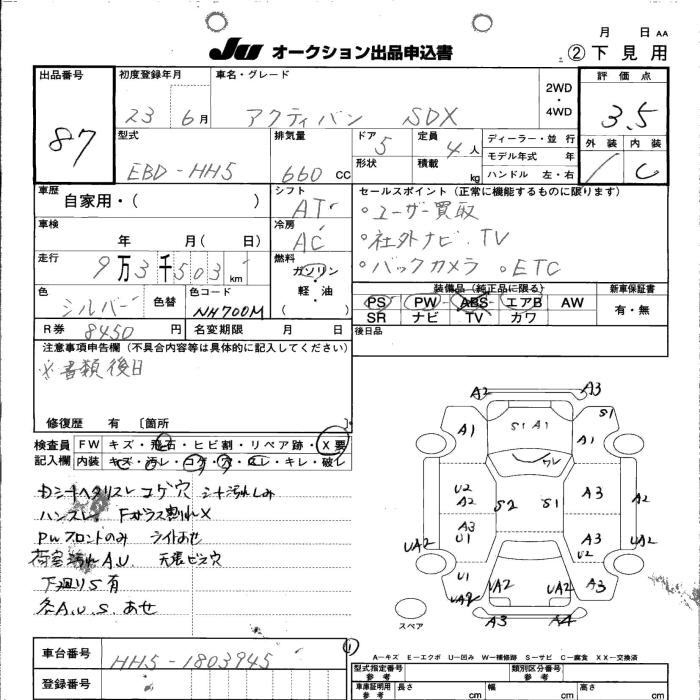 月 日 AA
JU オークション出品申込書
② 下見用
出品番号
87
初度登録年月
23 6月
車名・グレード
アクティバン SDX
2WD
・
4WD
評価点
3.5
外装 内装
C
型式
EBD-HH5
排気量
660 CC
ドア 5
形状
定員 4 人
積載 kg
ディーラー・並行
モデル年式 年
ハンドル 左・右
車歴
自家用・( )
シフト
AT
セールスポイント(正常に機能するものに限ります)
。ユーザー買取
。社外ナビ.TV
。バックカメラ 。ETC
車検
年 月( 日)
冷房
AC
走行
9万3千503 km
燃料
ガソリン
・
軽・油
( )
色
シルバー
色替
色コード
NH700M
装備品(純正品に限る)
PS PW ABS エアB AW
SR ナビ TV カワ
新車保証書
有・無
R券 8450 円
名変期限 月 日
後日品
注意事項申告欄(不具合内容等は具体的に記入してください)
※書類後日
修復歴 有 〔箇所 〕
検査員
記入欄
FW キズ・飛石・ヒビ割・リペア跡・X要
内装 キズ・汚レ・コゲ・穴・スレ・キレ・破レ
カンナヘタリスレ コゲ穴 シート汚れしみ
ハンスレ Fガラス割れX
PWフロントのみ ライトあせ
荷室汚れA.U. 天張ビス穴
下廻りS有
各A.U.S.あせ
A2 A3
S1
A1 S1 A1 A1
ワレ
U2
A2
S2 S1 A3
A2
A3
U1
A3
U2
UA2 UA2
U1
UA2
UA2 UA2 A3
A3 AA
スペア
A−キズ E−エクボ U−凹み W−補修跡 S−サビ C−腐食 XX−交換済
車台番号
HH5-1803945
①
登録番号
型式指定番号
参考
類別区分番号
参考
車庫証明用
参考
長さ cm
幅 cm
高さ cm